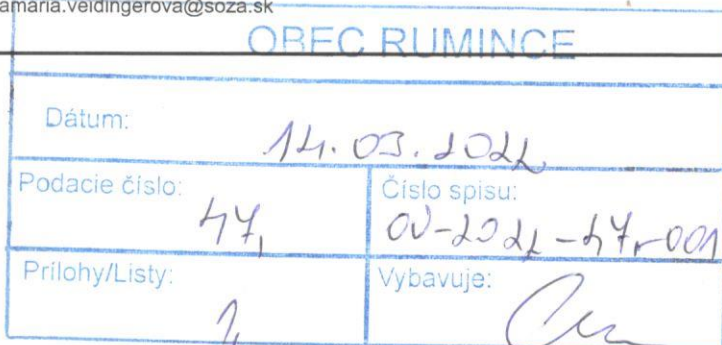 amaria.veidingerova@soza.sk
OBEC RUMINCE
Dátum: 14.03.2022
Podacie číslo: 47,
Číslo spisu: OÚ-2022-47-001
Prílohy/Listy: 1,
Vybavuje: